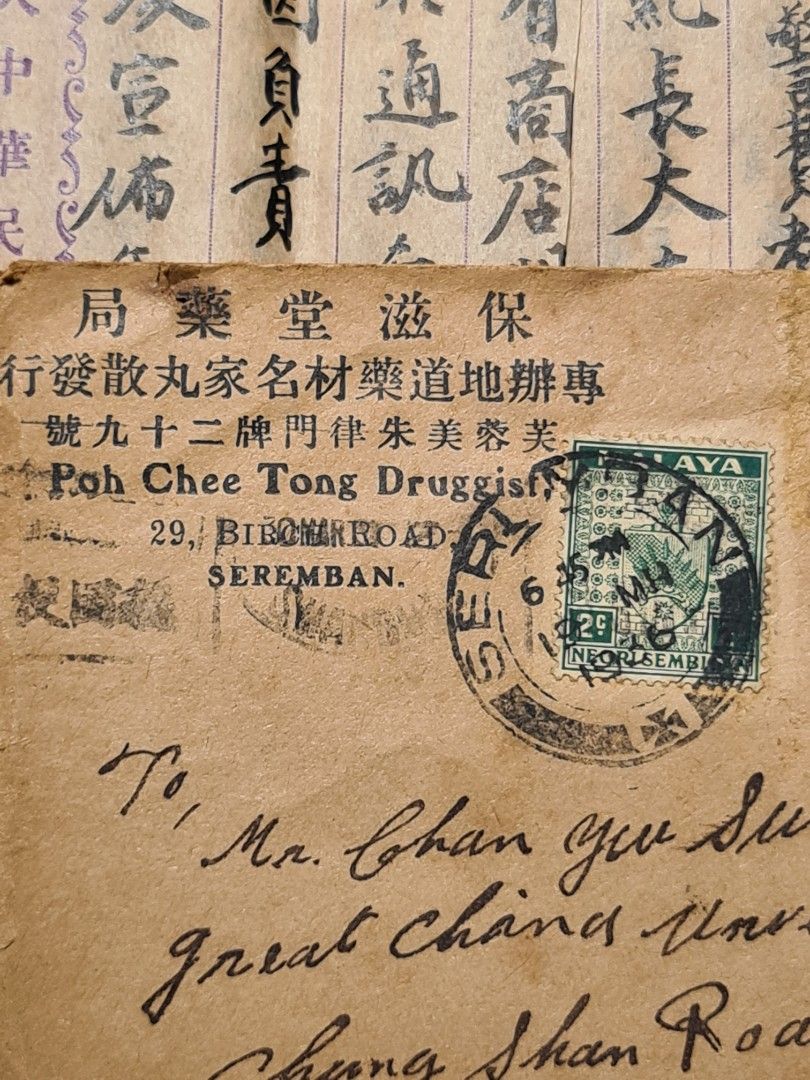 長大
商店
通訊
負責
宣佈
中華民
保滋堂藥局
專辦地道藥材名家丸散發行
芙蓉美朱律門牌二十九號
Poh Chee Tong Druggist,
29, BIRCH ROAD,
SEREMBAN.
MALAYA
2c
NEGRI SEMBILAN
SEREMBAN
To,
Mr. Chan Yew Su
Great China Univ
Chung Shan Road